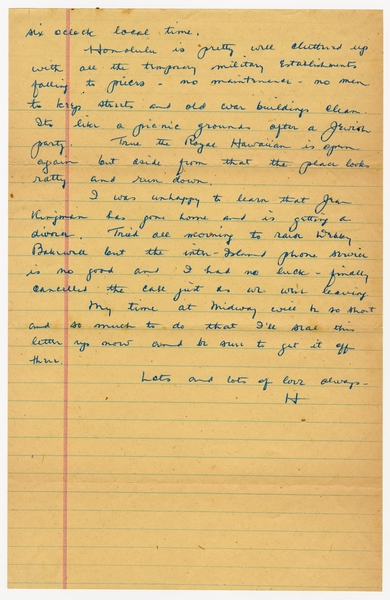 six oclock local time.
Honolulu is pretty well cluttered up
with all the temporary military Establishments
falling to pieces - no maintenance - no men
to keep streets and old war buildings clean.
Its like a picnic grounds after a Jewish
party. True the Royal Hawaiian is open
again but aside from that the place looks
ratty and run down.
I was unhappy to learn that Jean
Kingman has gone home and is getting a
divorce. Tried all morning to raise
Bakewell but the inter-Island phone service
is no good and I had no luck - finally
cancelled the call just as we were leaving
My time at Midway will be so short
and so much to do that I'll seal this
letter up now and be sure to get it off
there.
Lots and lots of love always -
H